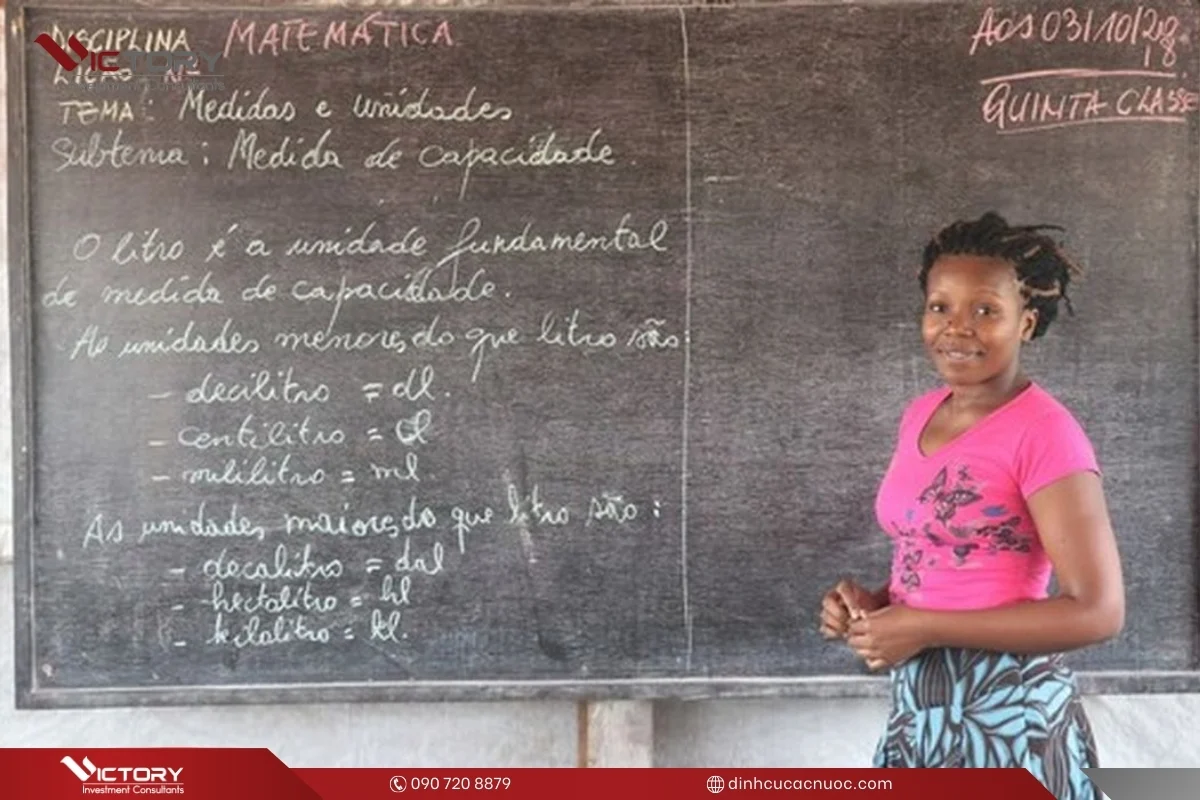 DISCIPLINA MATEMÁTICA
LIÇÃO Nº
TEMA: Medidas e unidades
Subtema: Medida de capacidade.
Aos 03/10/2018.
QUINTA CLASSE
O litro é a unidade fundamental
de medida de capacidade.
As unidades menores do que litro são:
- decilitro = dl.
- centilitro = cl
- mililitro = ml
As unidades maiores do que litro são:
- decalitro = dal
- hectalitro = hl
- kilalitro = kl.
VICTORY
Investment Consultants
VICTORY
Investment Consultants
090 720 8879
dinhcucacnuoc.com